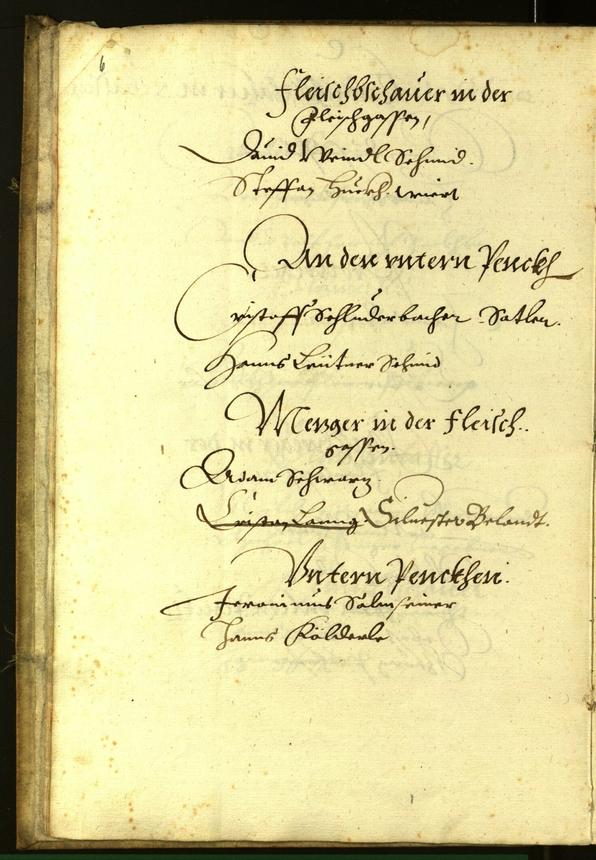 6
Fleischbschauer in der
Fleischgassen,
Dauid Weindl Schmid.
Steffan Huebh. wiert
An den vntern Penckh
Cristoff Schluderbacher Satler.
Hanns Leitner Schmid
Mezger in der Fleisch..
gassen.
Adam Schwarz.
Siluester Belandt.
Vntern Penckhen.
Jeronimus
Hanns Kölderle